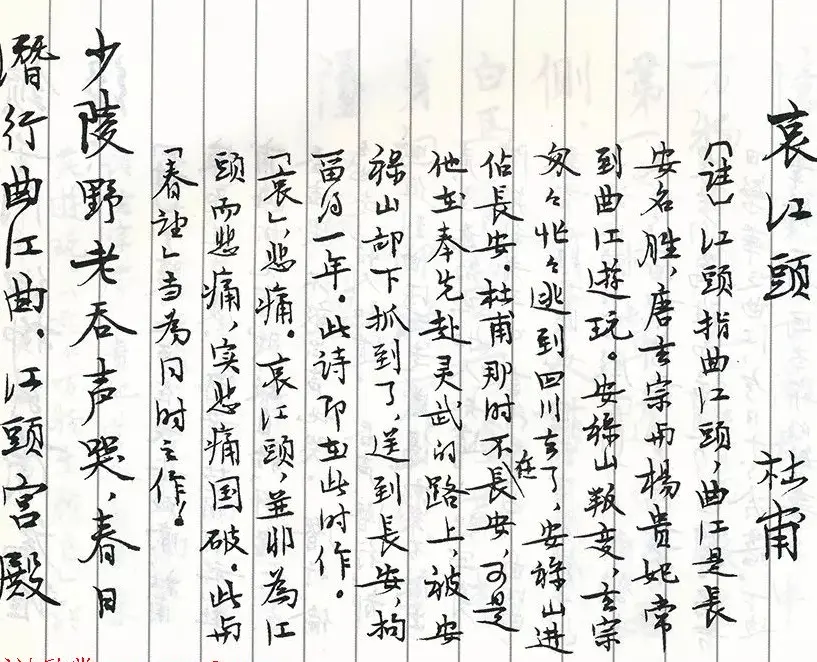 哀江頭 杜甫
「註」江頭指曲江頭，曲江是長
安名胜，唐玄宗與楊貴妃常
到曲江遊玩。安祿山叛变，玄宗
匆々忙々逃到四川去了，安祿山進
佔長安。杜甫那时不在長安，可是
他在奉先赴灵武的路上，被安
祿山部下抓到了，送到長安，拘
留约一年。此詩即在此时作。
「哀」，悲痛。哀江頭，並非為江
頭而悲痛，实悲痛国破。此與
「春望」当為同时之作！
少陵野老吞声哭，春日
潛行曲江曲．江頭宮殿